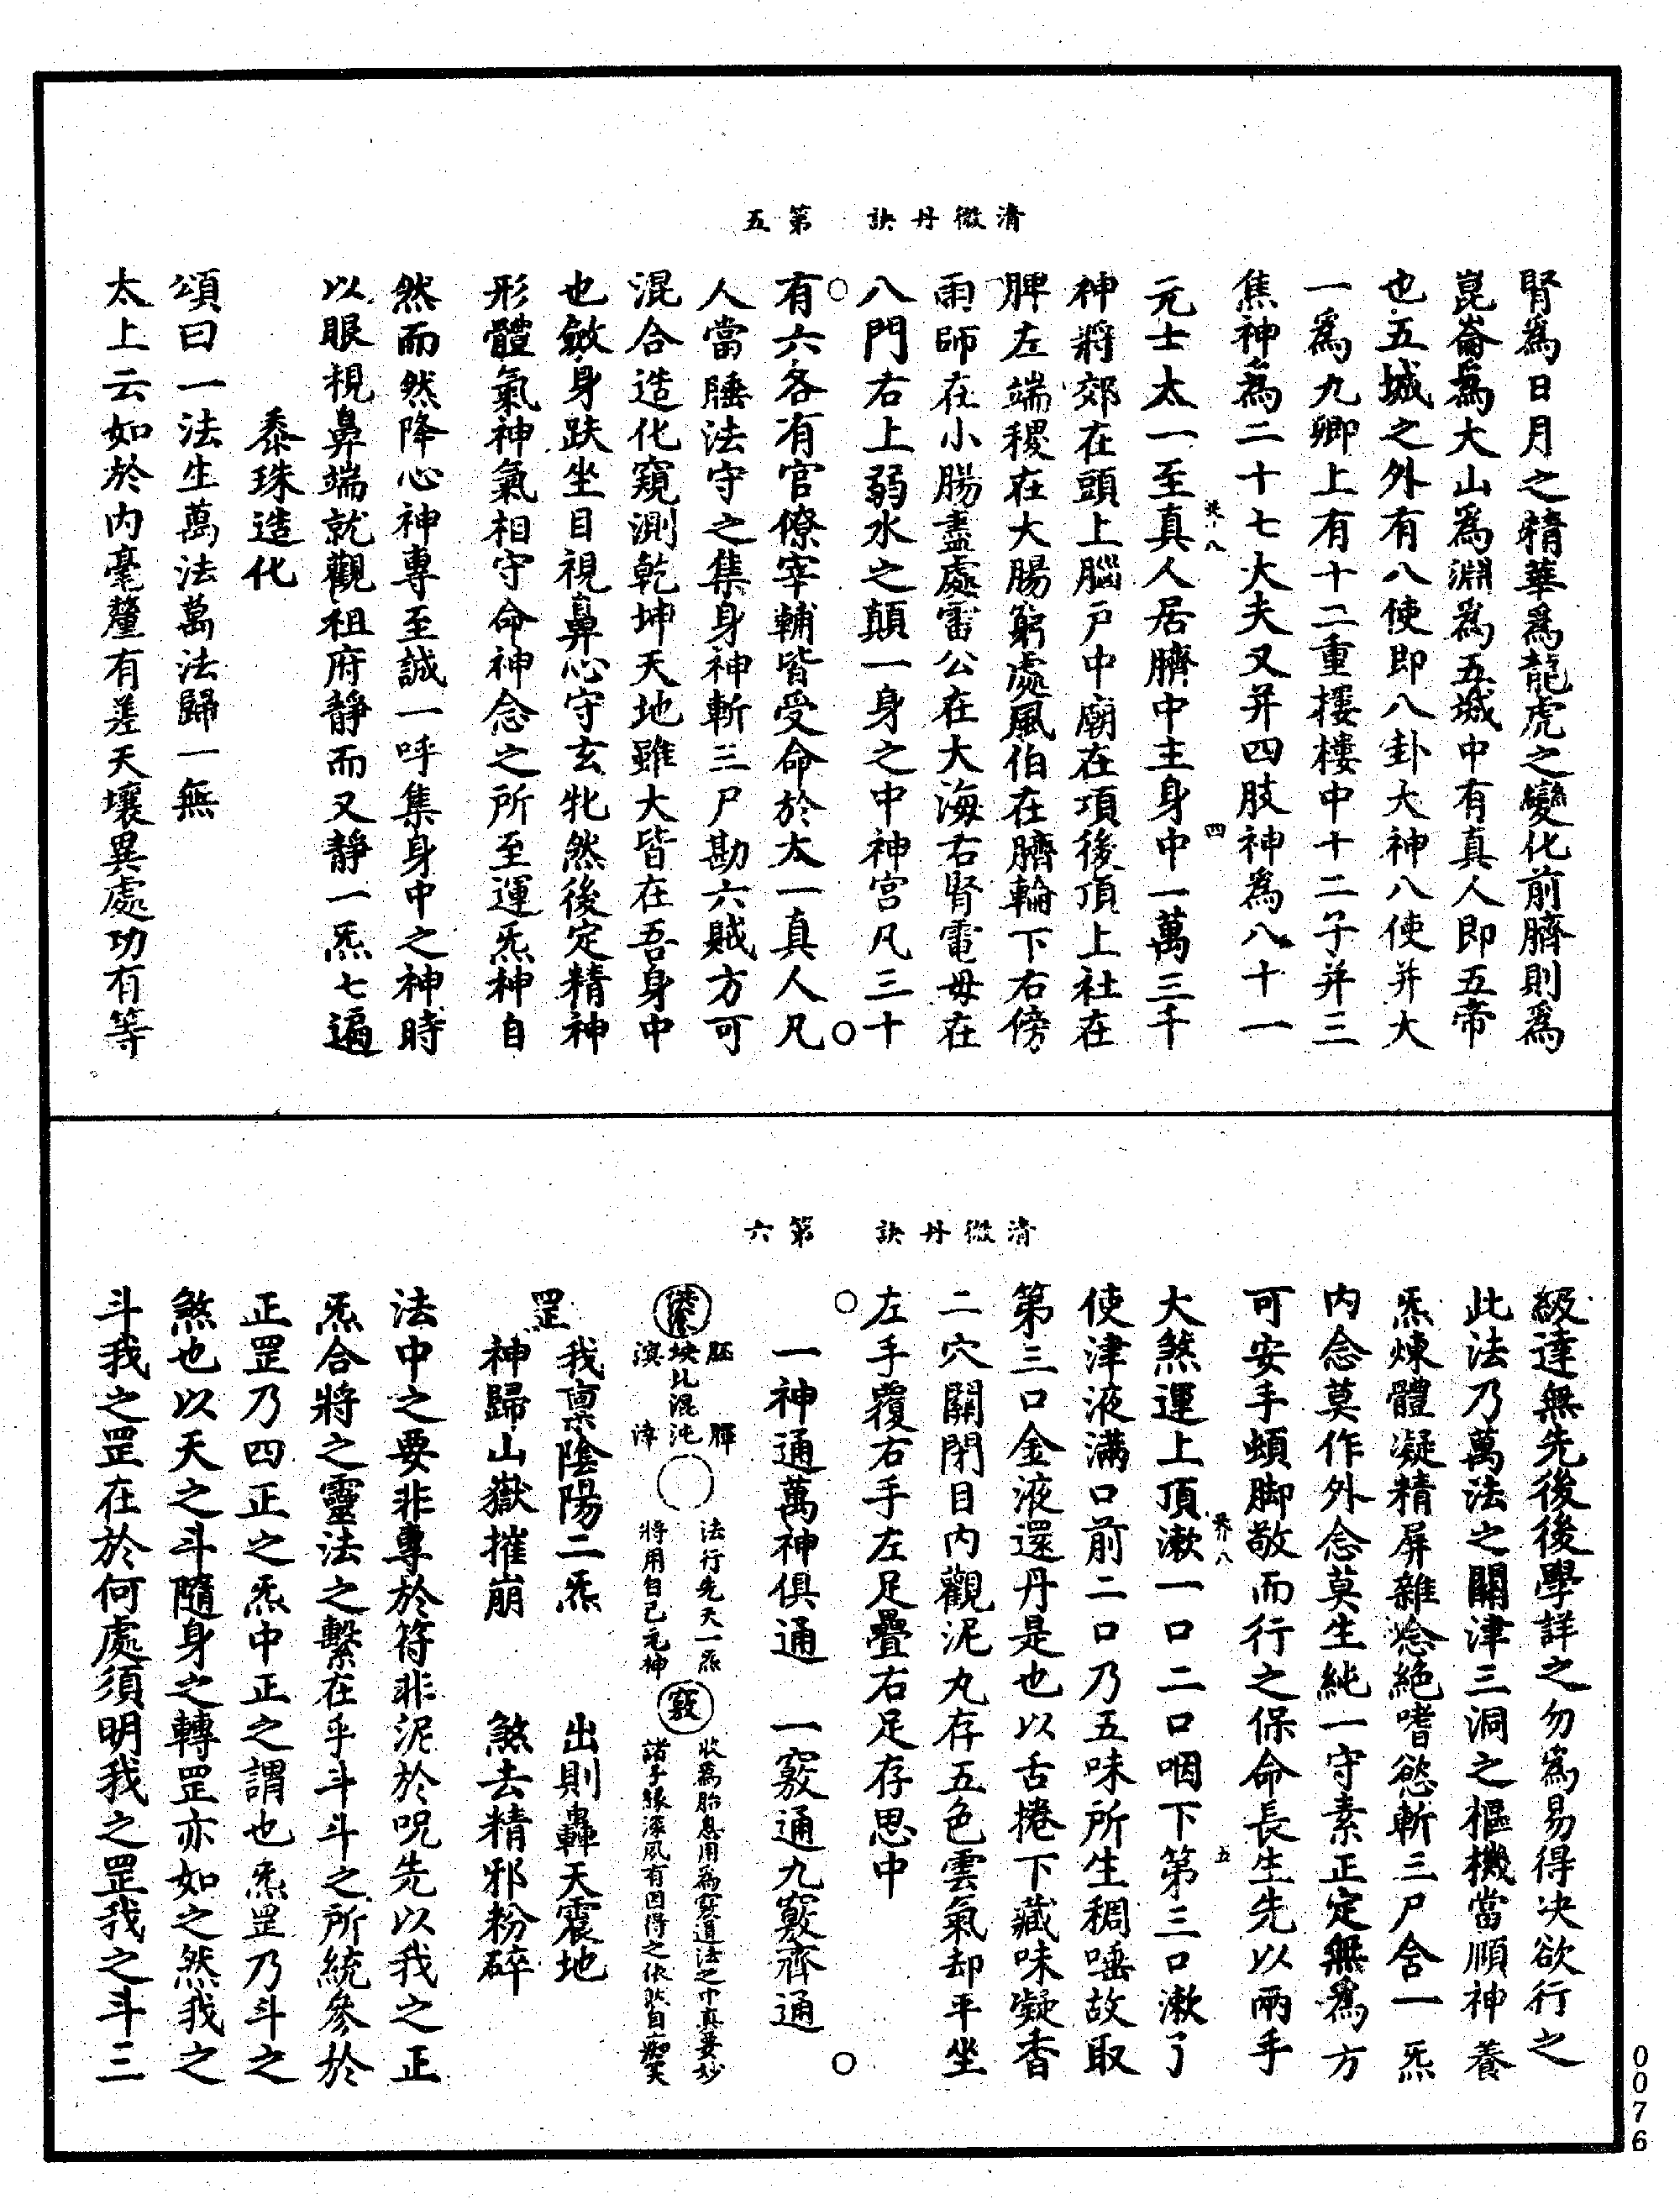 清微丹訣 第五
腎爲日月之精華爲龍虎之變化前臍則爲
崑崙爲大山爲淵爲五城中有真人即五帝
也五城之外有八使即八卦大神八使并大
一爲九卿上有十二重樓樓中十二子并三
焦神爲二十七大夫又并四肢神爲八十一
元士太一至真人居臍中主身中一萬三千
四
神將郊在頭上腦戶中廟在項後頂上社在
脾左端稷在大腸窮處風伯在臍輪下右傍
雨師在小腸盡處雷公在大海右腎電母在
八門右上弱水之顛一身之中神宮凡三十
有六各有官僚宰輔皆受命於太一真人凡
人當睡法守之集身神斬三尸勘六賊方可
混合造化窺測乾坤天地雖大皆在吾身中
也斂身趺坐目視鼻心守玄牝然後定精神
形體氣神氣相守命神念之所至運炁神自
然而然降心神專至誠一呼集身中之神時
以眼視鼻端就觀祖府靜而又靜一炁七遍
黍珠造化
頌曰一法生萬法萬法歸一無
太上云如於內毫釐有差天壤異處功有等
清微丹訣 第六
級達無先後後學詳之勿爲易得决欲行之
此法乃萬法之關津三洞之樞機當順神養
炁煉體凝精屏雜念絕嗜慾斬三尸舍一炁
內念莫作外念莫生純一守素正定無爲方
可安手頓脚敬而行之保命長生先以兩手
大煞運上頂漱一口二口咽下第三口漱了
五
使津液滿口前二口乃五味所生稠唾故取
第三口金液還丹是也以舌捲下藏味凝香
二穴關閉目內觀泥丸存五色雲氣却平坐
左手覆右手左足疊右足存思中
一神通萬神俱通 一竅通九竅齊通
胚
比混沌
暉
法行先天一炁
將用自己元神
竅
收爲胎息用爲竅道法之中真要妙
諸子緣深夙有因得之依然自癡笑
罡
我稟陰陽二炁 出則轟天震地
神歸山嶽摧崩 煞去精邪粉碎
法中之要非專於符非泥於呪先以我之正
炁合將之靈法之繫在乎斗斗之所統參於
正罡乃四正之炁中正之謂也炁罡乃斗之
煞也以天之斗隨身之轉罡亦如之然我之
斗我之罡在於何處須明我之罡我之斗三
0076